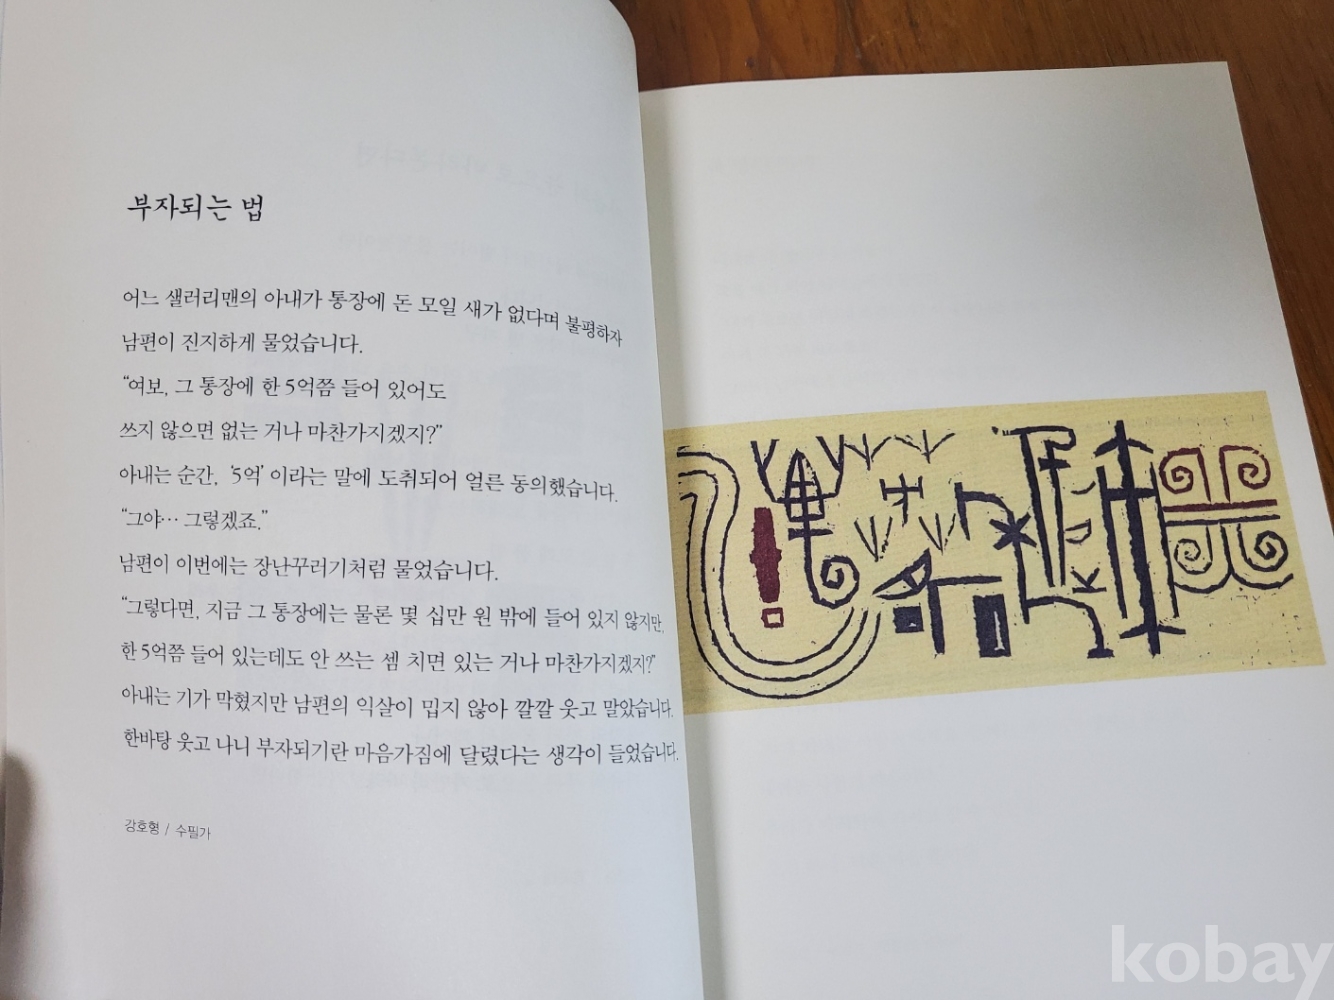 부자되는 법
어느 샐러리맨의 아내가 통장에 돈 모일 새가 없다며 불평하자
남편이 진지하게 물었습니다.
“여보, 그 통장에 한 5억쯤 들어 있어도
쓰지 않으면 없는 거나 마찬가지겠지?”
아내는 순간, ‘5억’ 이라는 말에 도취되어 얼른 동의했습니다.
“그야… 그렇겠죠.”
남편이 이번에는 장난꾸러기처럼 물었습니다.
“그렇다면, 지금 그 통장에는 물론 몇 십만 원 밖에 들어 있지 않지만,
한 5억쯤 들어 있는데도 안 쓰는 셈 치면 있는 거나 마찬가지겠지?”
아내는 기가 막혔지만 남편의 익살이 밉지 않아 깔깔 웃고 말았습니다.
한바탕 웃고 나니 부자되기란 마음가짐에 달렸다는 생각이 들었습니다.
강호형 / 수필가
kobay